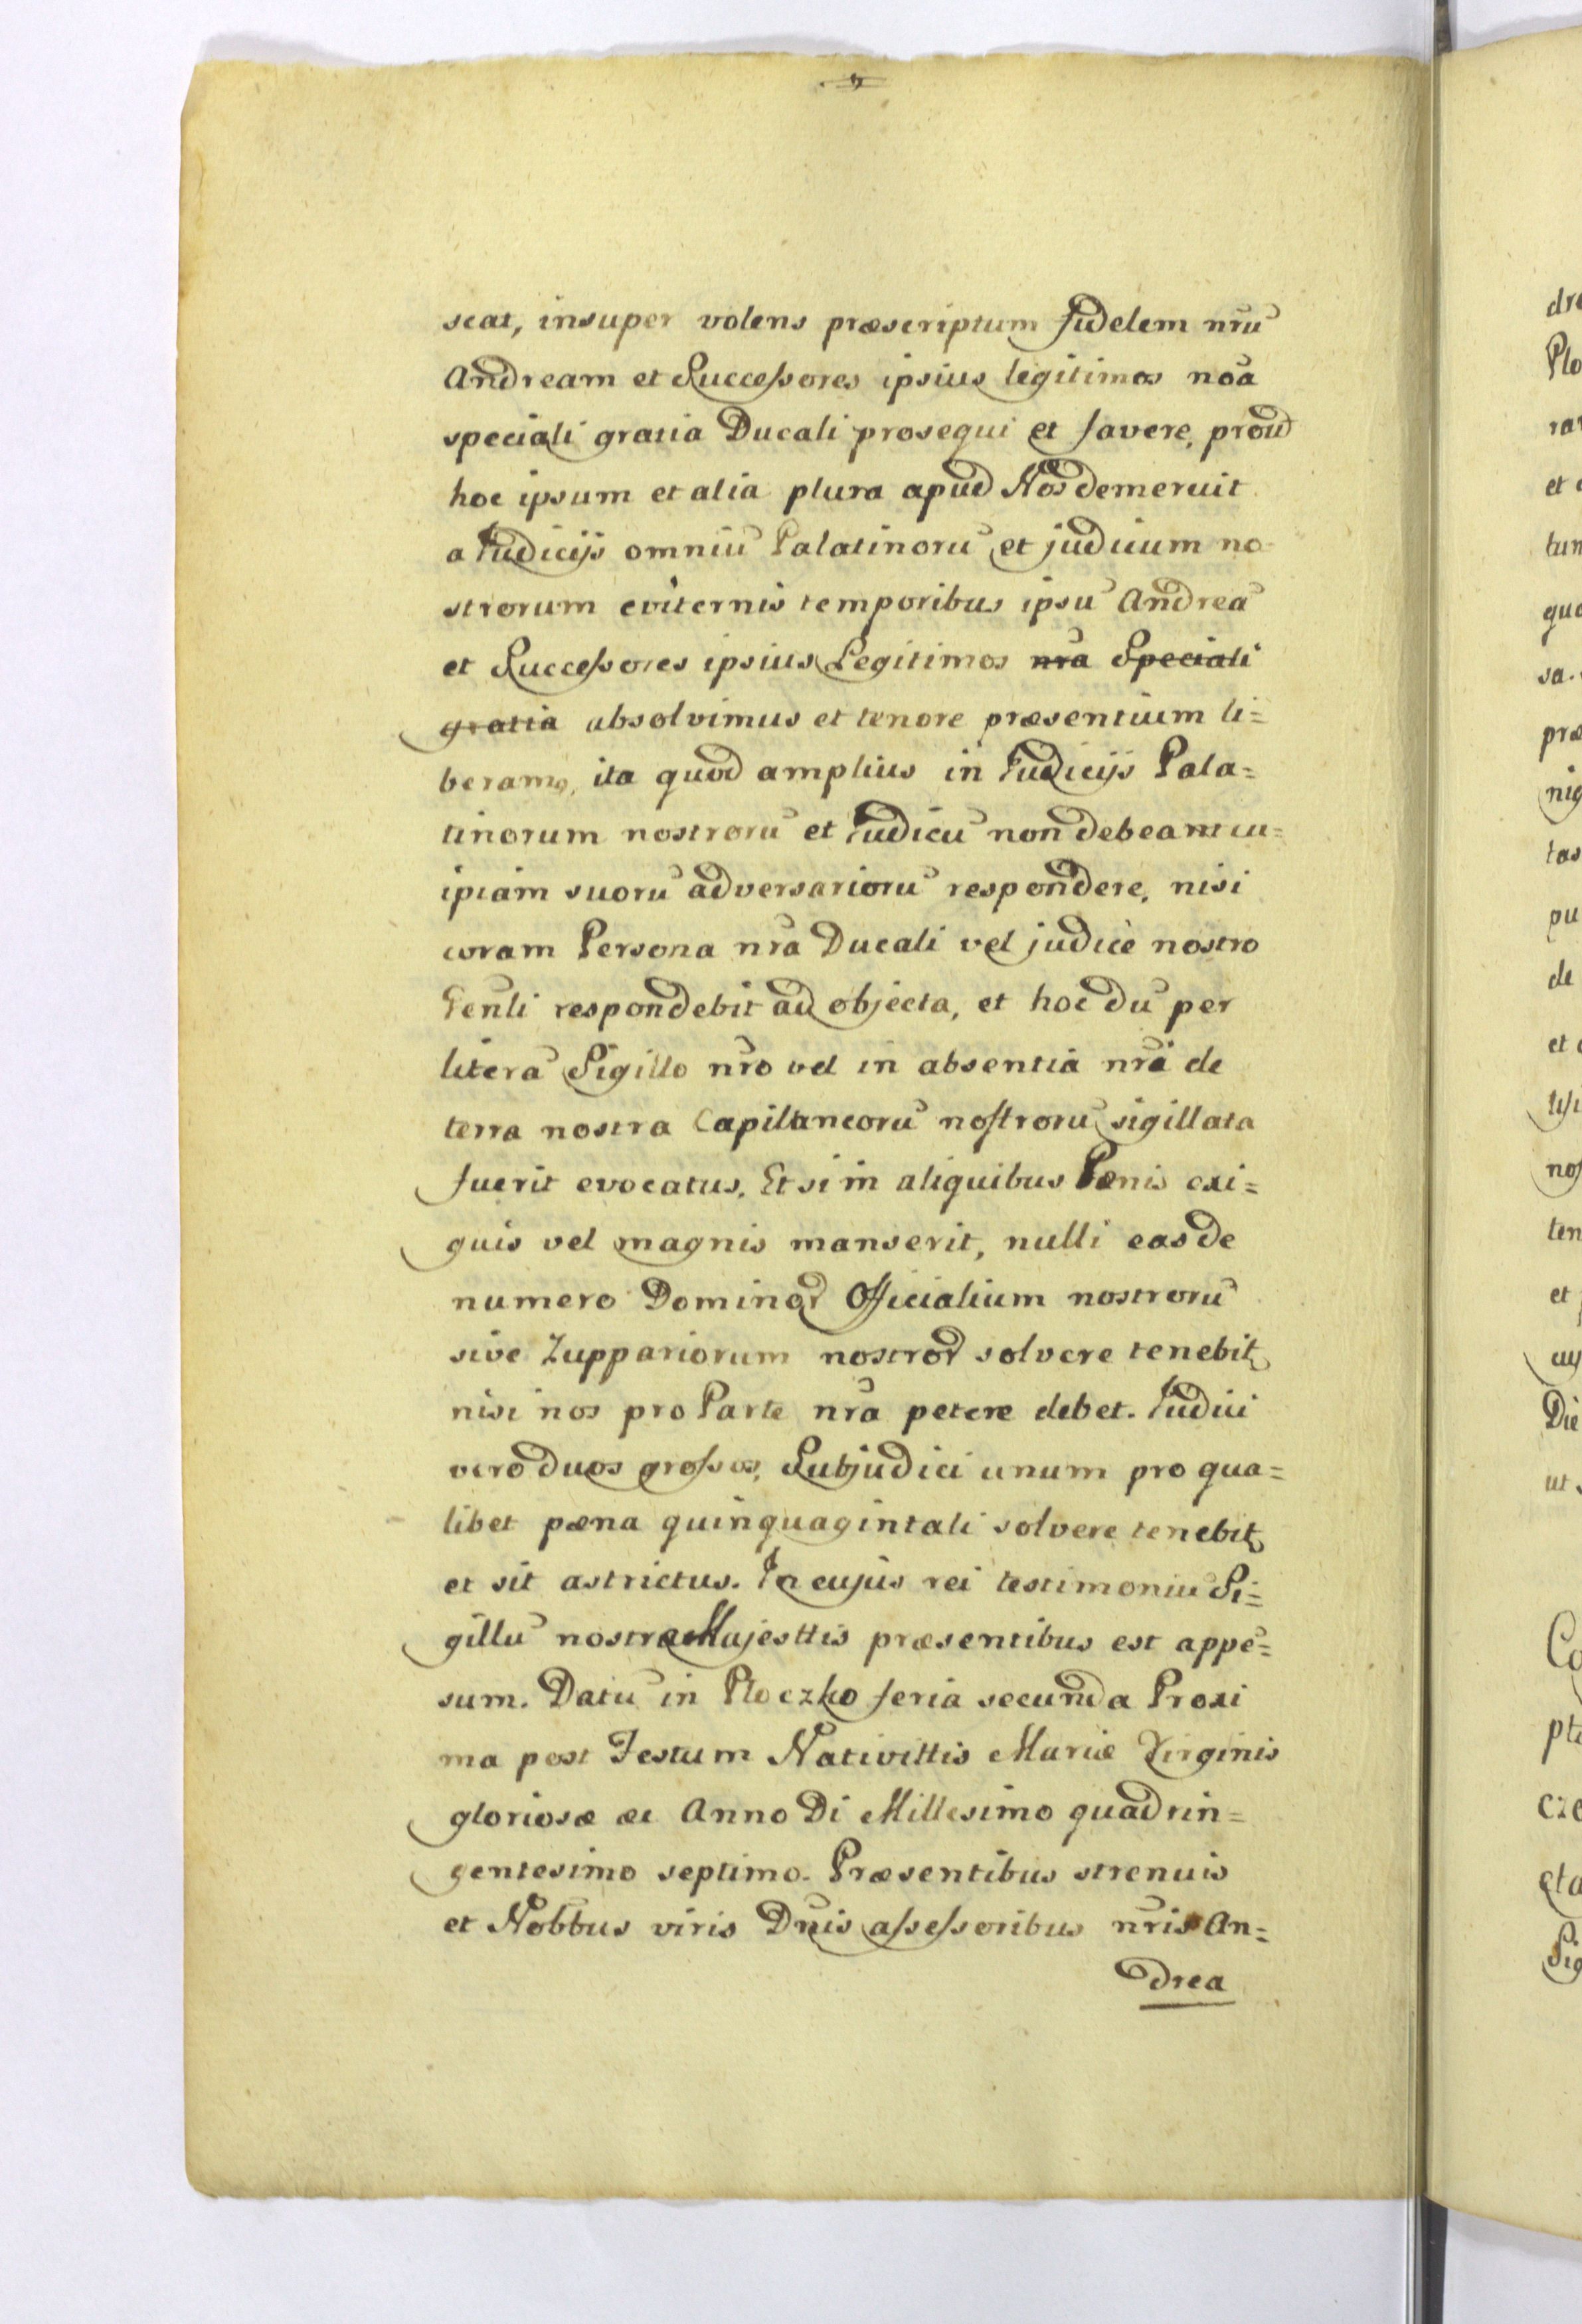 scat, insuper volens præscriptum fidelem nr̃ũ
Andream et Successores ipsius legitimos nõa
speciali gratia Ducali prosequi et favere, proũd
hoc ipsum et alia plura apud Nos demeruit
a Judicijs omniũ Palatinorũ et judicum no
strorum eviternis temporibus ipsũ Andreã
et Successores ipsius Legitimos nr̃a Speciali
gratia absolvimus et tenore præsentium li=
beramꝰ, ita quod amplius in Judicijs Pala=
tinorum nostrorũ et Judicũ non debeant cu=
ipiam suorũ adversariorũ respondere, nisi
coram Persona nr̃a Ducali vel judicè nostro
Genl̃i respondebit ad objecta, et hoc dũ per
literã Sigillo nr̃o vel in absentia nr̃a de
terra nostra Capitaneorũ nostrorũ sigillata
fuerit evocatus. Et si in aliquibus Pænis exi=
guis vel magnis manserit, nulli eas de
numero Dominoꝝ Officialium nostrorũ
sive Zuppariorum nostroꝝ solvere tenebit
nisi nos pro Parte nr̃a petere debet. Judici
vero duos grossos, Subjudici unum pro qua=
libet pæna quinquagintali solvere tenebit
et sit astrictus. In cujus rei testimoniũ Si=
gillũ nostræ Majesttis præsentibus est appẽ=
sum. Datũ in Ploczko feria secunda Proxi
ma post Festum Nativittis Mariæ Virginis
gloriosæ æc Anno Di Millesimo quadrin=
gentesimo septimo. Præsentibus strenuis
et Nobbus viris Dñis assessoribus nr̃is An=
drea